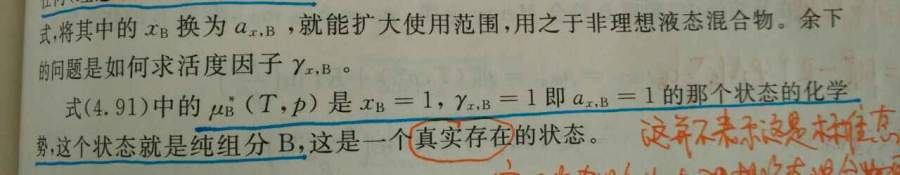 式,将其中的 x_B 换为 a_{x,B} ,就能扩大使用范围,用之于非理想液态混合物。余下
的问题是如何求活度因子 γ_{x,B} 。
式(4.91)中的 μ_B^*(T,p) 是 x_B = 1, γ_{x,B} = 1 即 a_{x,B} = 1 的那个状态的化学
势,这个状态就是纯组分 B,这是一个真实存在的状态。 这并不表示这是标准态